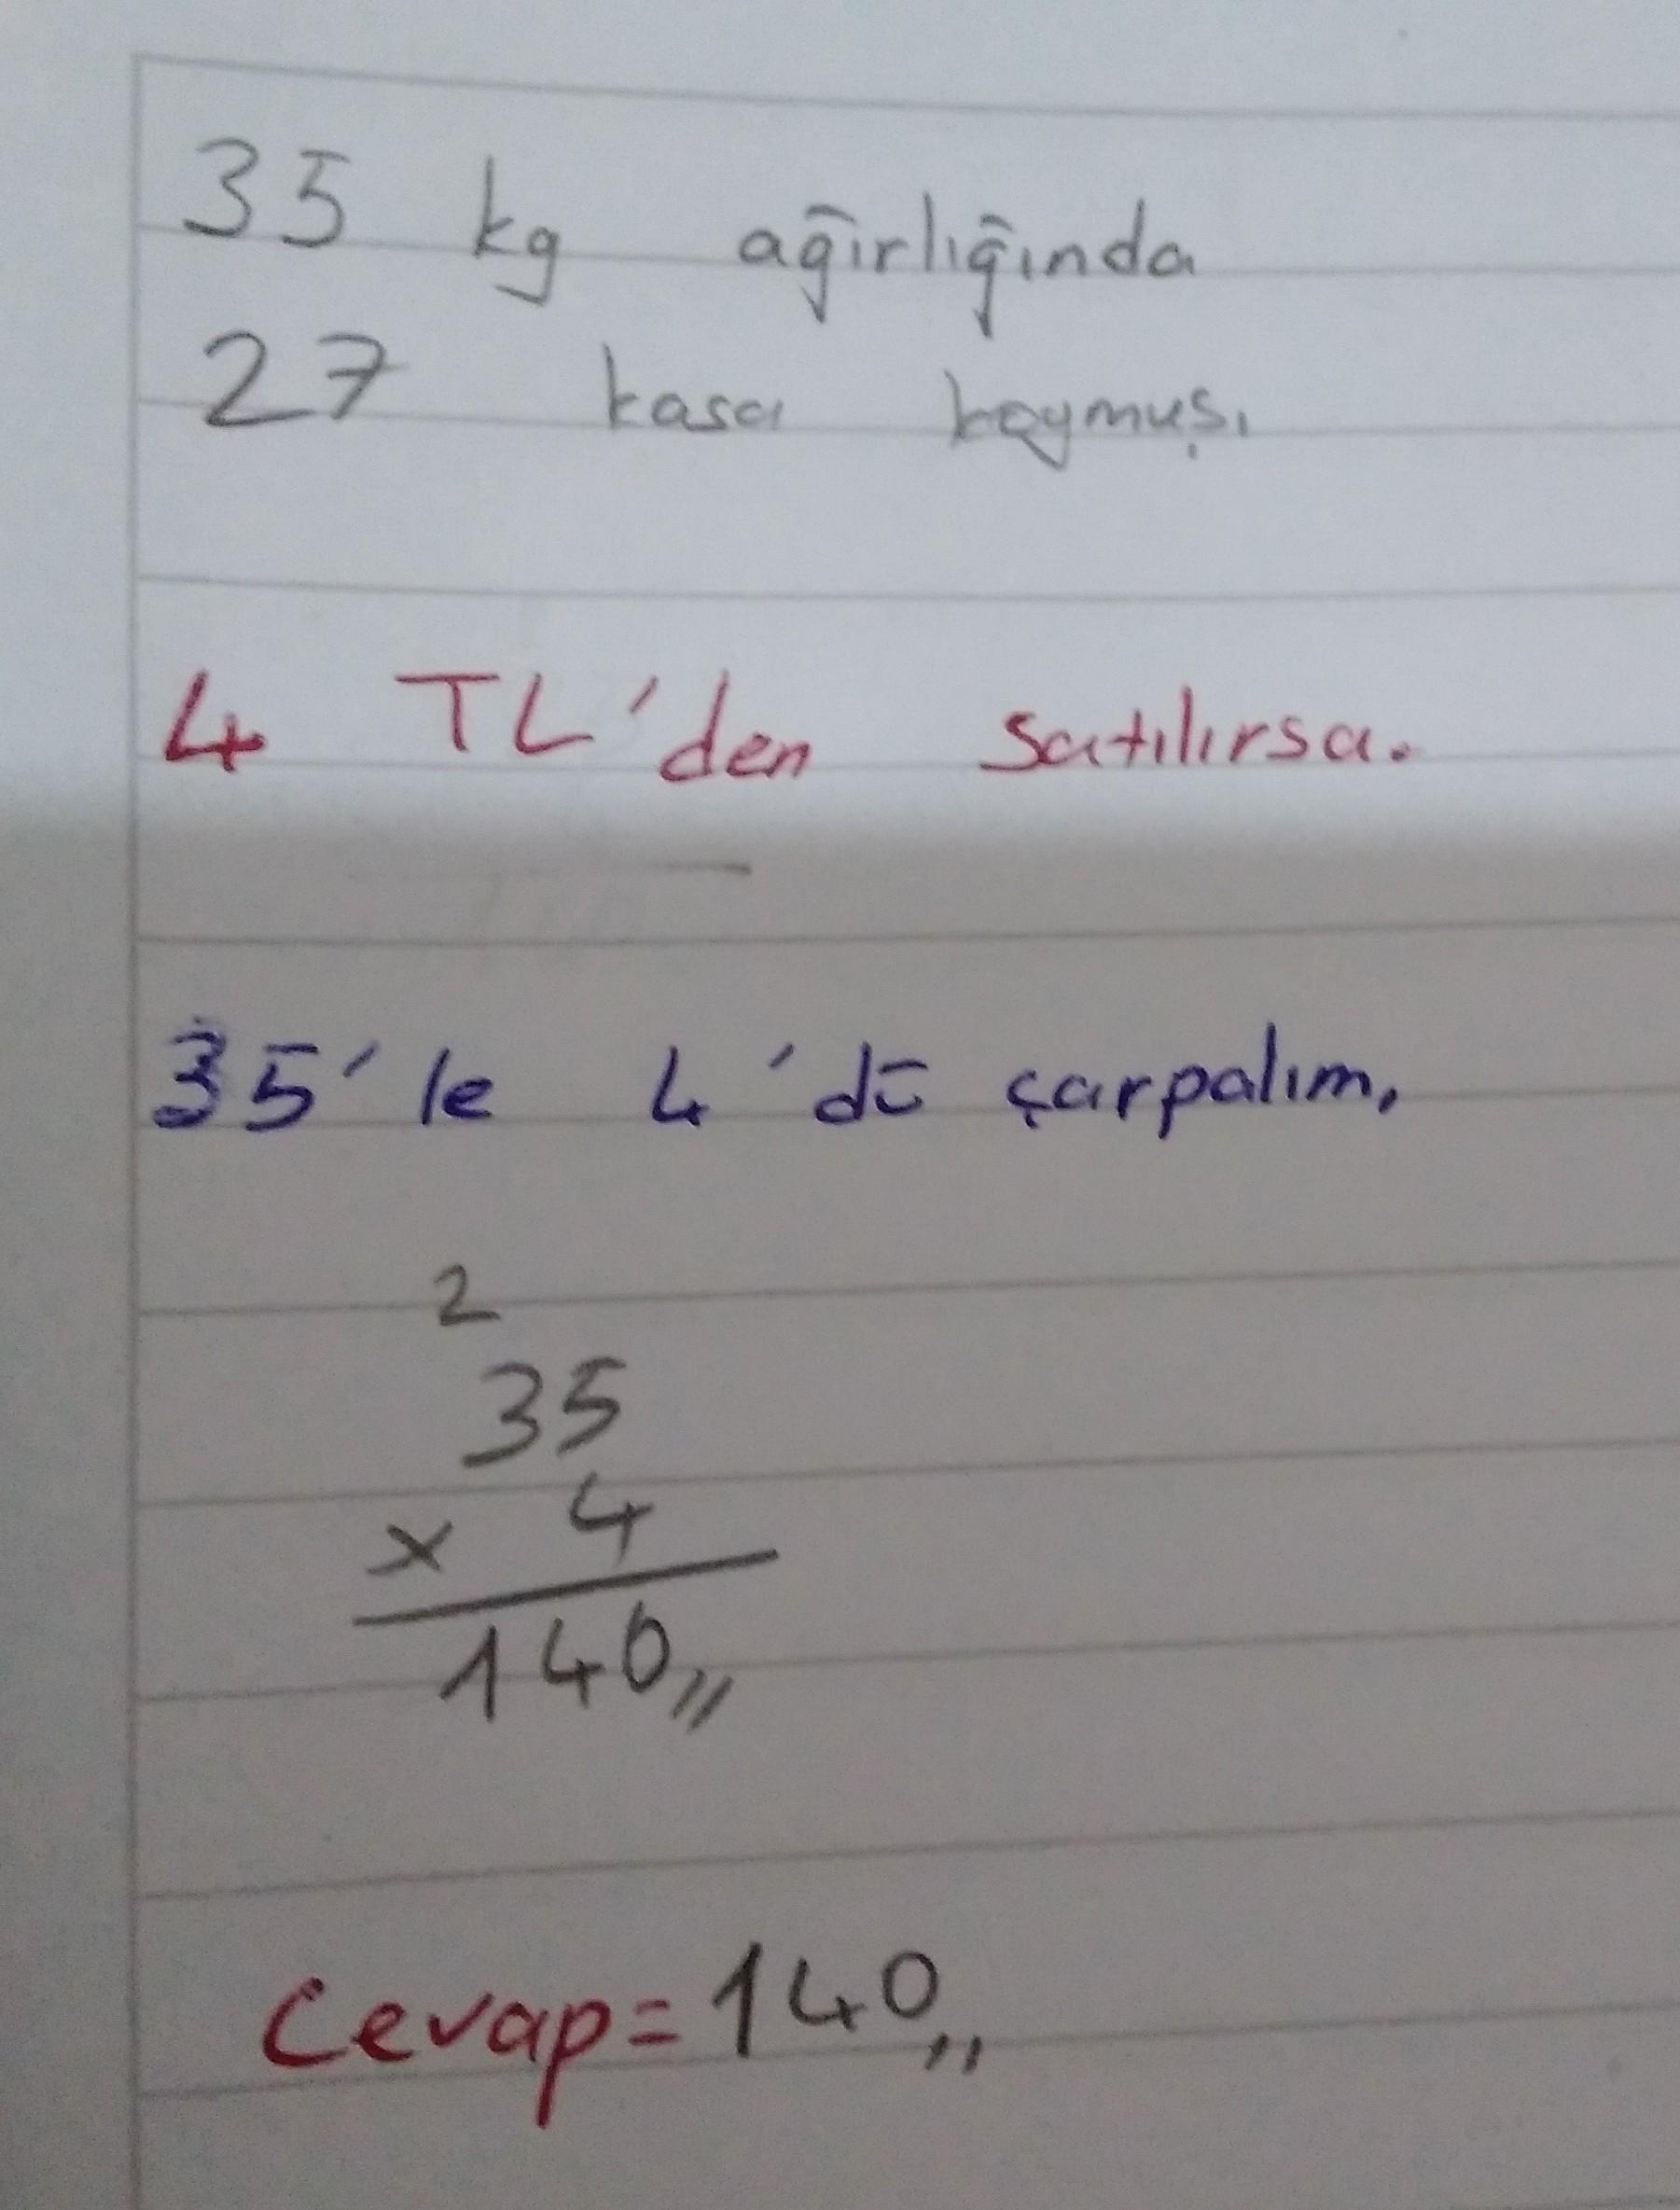 35 kg ağırlığında
27 kasa koymuş.
4 TL'den satılırsa.
35'le 4'dü çarpalım.
2
35
x 4
140,,
Cevap=140,,